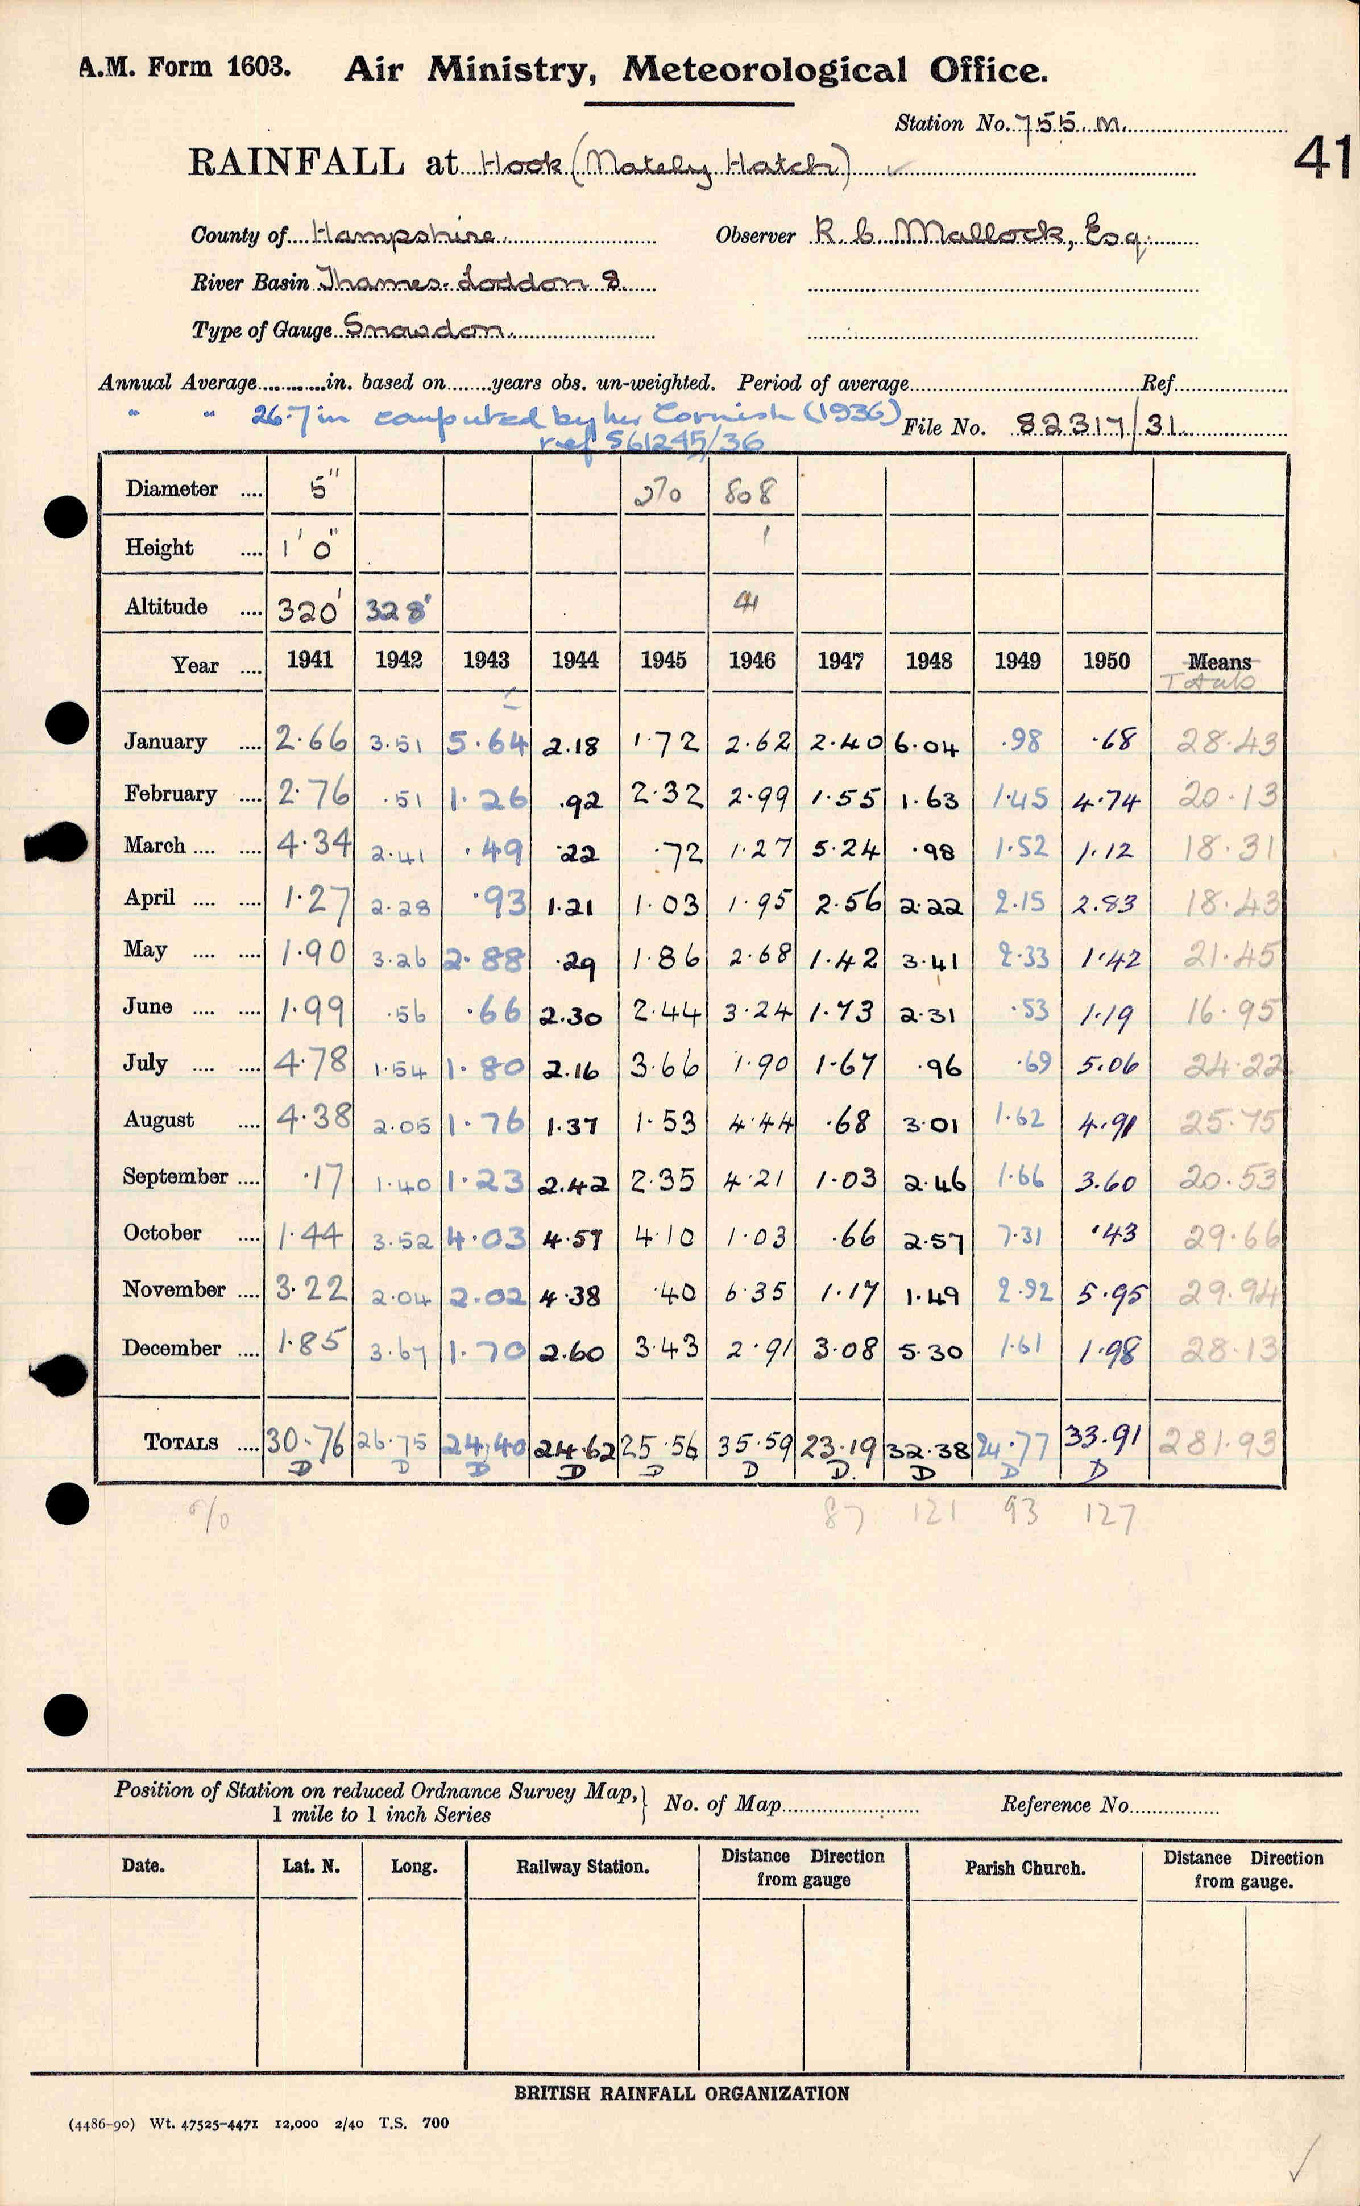 A.M. Form 1603. Air Ministry, Meteorological Office.
Station No. 755 M.
41
RAINFALL at Hook (Mately Hatch) ✓
County of Hampshire Observer R. C. Mallock, Esq.
River Basin Thames. Loddon 8
Type of Gauge Snowdon.
Annual Average in. based on years obs. un-weighted. Period of average Ref
" " 26.7 in computed by Cornish (1936) File No. 82317/31
ref 561245/36
Diameter 5" 270 808
Height 1' 0" 1
Altitude 320' 328' 41
Year 1941 1942 1943 1944 1945 1946 1947 1948 1949 1950 Means
Totals
January 2.66 3.51 5.64 2.18 1.72 2.62 2.40 6.04 .98 .68 28.43
February 2.76 .51 1.26 .92 2.32 2.99 1.55 1.63 1.45 4.74 20.13
March 4.34 2.41 .49 .22 .72 1.27 5.24 .98 1.52 1.12 18.31
April 1.27 2.28 .93 1.21 1.03 1.95 2.56 2.22 2.15 2.83 18.43
May 1.90 3.26 2.88 .29 1.86 2.68 1.42 3.41 2.33 1.42 21.45
June 1.99 .56 .66 2.30 2.44 3.24 1.73 2.31 .53 1.19 16.95
July 4.78 1.54 1.80 2.16 3.66 1.90 1.67 .96 .69 5.06 24.22
August 4.38 2.05 1.76 1.37 1.53 4.44 .68 3.01 1.62 4.91 25.75
September .17 1.40 1.23 2.42 2.35 4.21 1.03 2.46 1.66 3.60 20.53
October 1.44 3.52 4.03 4.57 4.10 1.03 .66 2.57 7.31 .43 29.66
November 3.22 2.04 2.02 4.38 .40 6.35 1.17 1.49 2.92 5.95 29.94
December 1.85 3.67 1.70 2.60 3.43 2.91 3.08 5.30 1.61 1.98 28.13
TOTALS 30.76 26.75 24.40 24.62 25.56 35.59 23.19 32.38 24.77 33.91 281.93
D D D D D D D. D D D
% 87 121 93 127
Position of Station on reduced Ordnance Survey Map, 1 mile to 1 inch Series } No. of Map Reference No.
Date. Lat. N. Long. Railway Station. Distance Direction from gauge Parish Church. Distance Direction from gauge.
BRITISH RAINFALL ORGANIZATION
(4486-90) Wt. 47525-4471 12,000 2/40 T.S. 700
✓